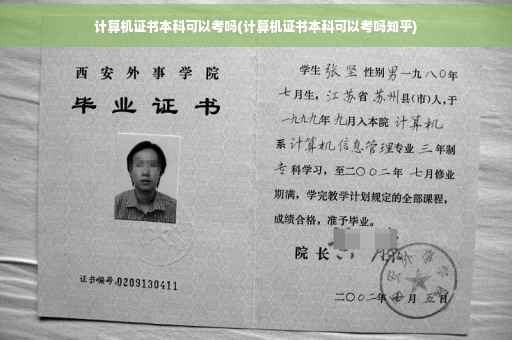 计算机证书本科可以考吗(计算机证书本科可以考吗知乎)
西安外事学院
毕业证书
证书编号:0209130411
学生张坚性别男一九八〇年
七月生，江苏省苏州县(市)人,于
一九九九年九月入本院计算机
系计算机信息管理专业三年制
专科学习，至二〇〇二年七月修业
期满，学完教学计划规定的全部课程，
成绩合格，准予毕业。
院长
二〇〇二年 月五日